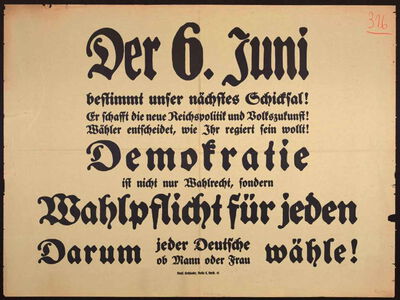 316
Der 6. Juni
bestimmt unser nächstes Schicksal!
Er schafft die neue Reichspolitik und Volkszukunft!
Wähler entscheidet, wie Ihr regiert sein wollt!
Demokratie
ist nicht nur Wahlrecht, sondern
Wahlpflicht für jeden
Darum jeder Deutsche ob Mann oder Frau wähle!